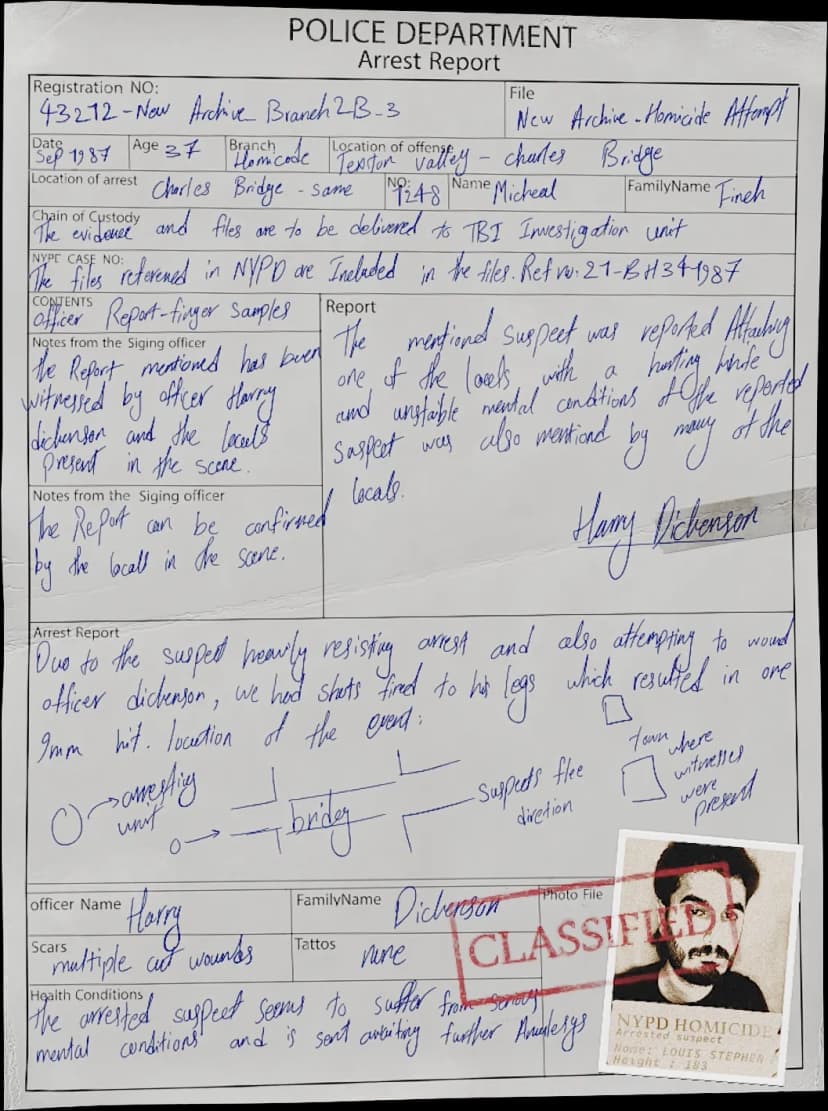 POLICE DEPARTMENT
Arrest Report
Registration NO:
43212-New Archive Branch 2B-3
File
New Archive-Homicide Attempt
Date
Sep 1987
Age 37
Branch
Homicode
Location of offense
Texiton valley - charles Bridge
Location of arrest Charles Bridge - same
NO:
7248
Name Micheal
FamilyName Fineh
Chain of Custody
The evidence and files are to be delivered to TBI Investigation unit
NYPE CASE NO:
The files referened in NYPD are Included in the files. Ref no: 21-BH34-1987
CONTENTS
officer Report-finger samples
Notes from the Siging officer
the Report mentioned has been
witnessed by officer Harry
dickenson and the locals
present in the scene.
Notes from the Siging officer
The Report can be confirmed
by the locall in the scene.
Report
The mentioned suspect was reported Attacking
one of the locels with a hunting knife
and unstaible mental conditions of the reported
suspect was also mentiond by many of the
locals.
Harry Dickenson
Arrest Report
Due to the suspect heavily resisting arrest and also attempting to wound
officer dickenson, we had shots fired to his legs which resulted in one
9mm hit. location of the event:
arresting
unit
bridg
Suspects flee
diretion
town where
witnesses
were
present
officer Name Harry
FamilyName Dickenson
Photo File
Scars
multiple cut wounds
Tattos
none
CLASSIFIED
Health Conditions
the arrested suspect seems to suffer from serious
mental conditions and is sent awaiting further
NYPD HOMICIDE
Arrested suspect
Name: LOUIS STEPHEN
Height : 183